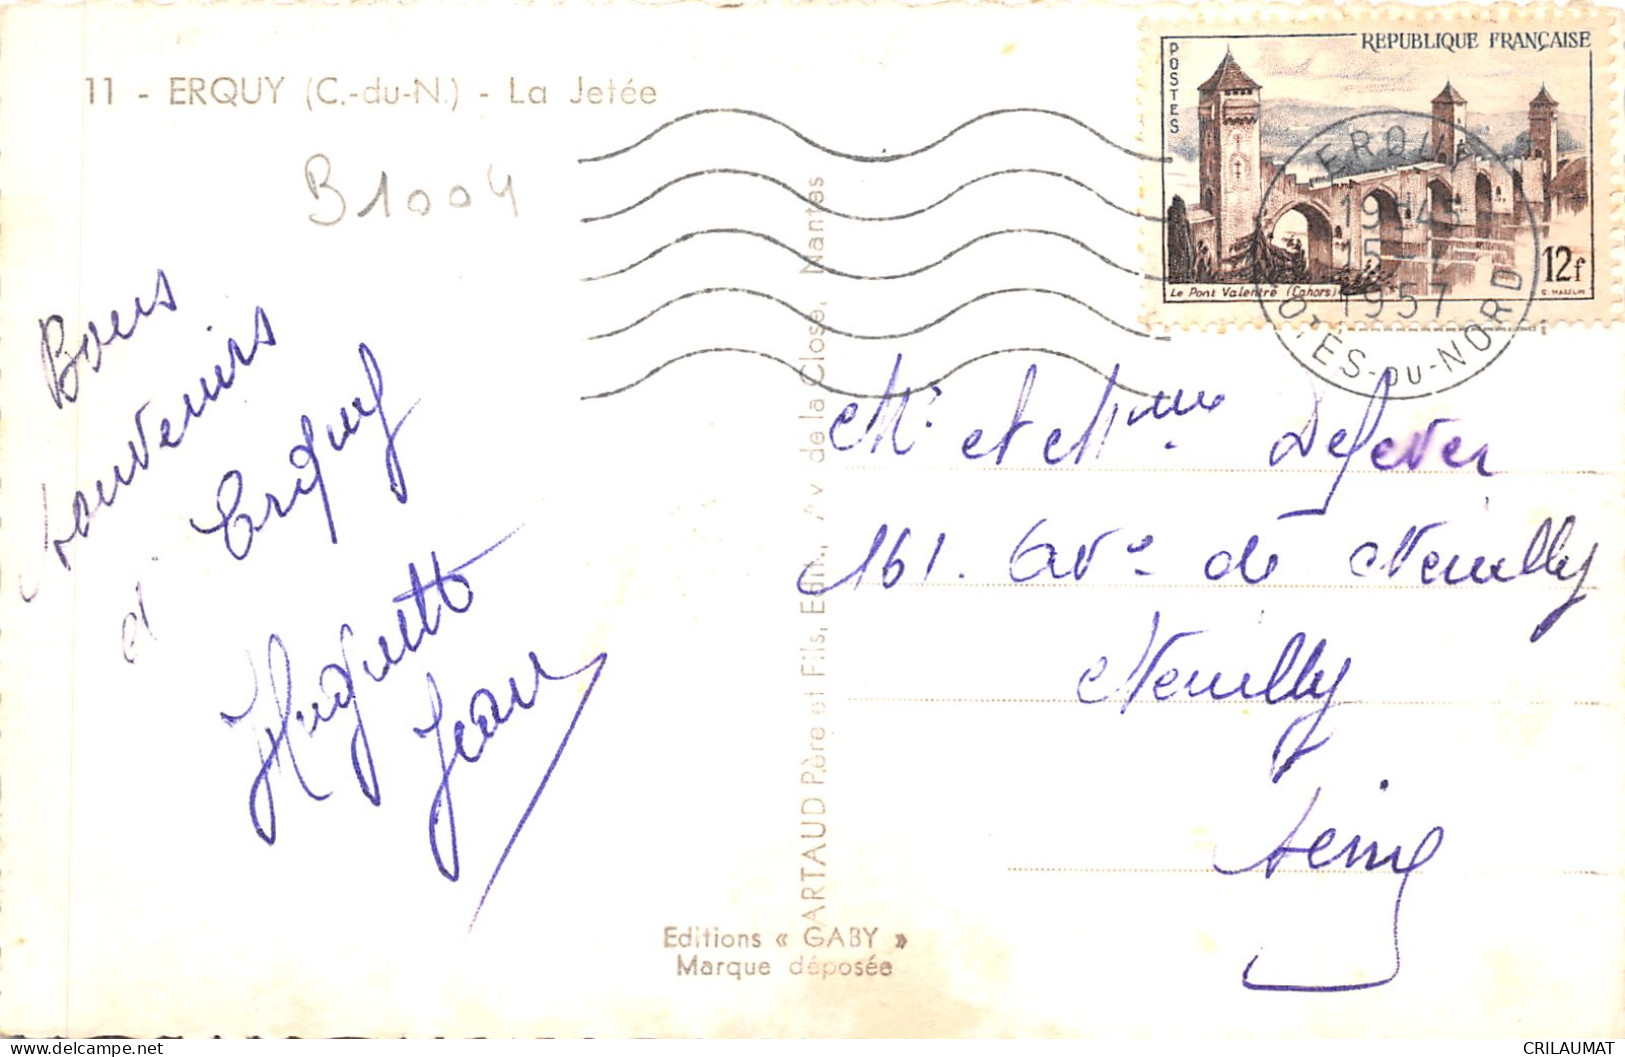 11 - ERQUY (C.-du-N.) - La Jetée
B1004
Bons
souvenirs
d'Erquy
Huguette
Jean
ARTAUD Père et Fils, Edit., Av. de la Close, Nantes
Editions « GABY »
Marque déposée
POSTES
REPUBLIQUE FRANÇAISE
Le Pont Valentré (Cahors)
12f
ERQUY
19H45
1957
COTES-DU-NORD
Mr et Mme Lefever
161. Ave de Neuilly
Neuilly
Seine
CRILAUMAT